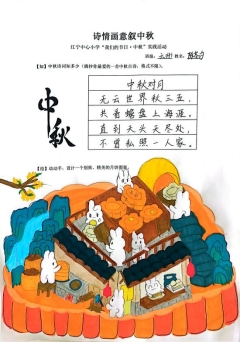 诗情画意叙中秋
江宁中心小学“我们的节日·中秋”实践活动
班级: 姓名:
【知】中秋诗词知多少（摘抄你最爱的一首中秋古诗，格式不限）。
中秋对月
无云世界秋三五，
共看蟾盘上海涯。
直到天头天尽处，
不曾私照一人家。
中秋
【绘】动动手，设计一个创新、精美的月饼图案。